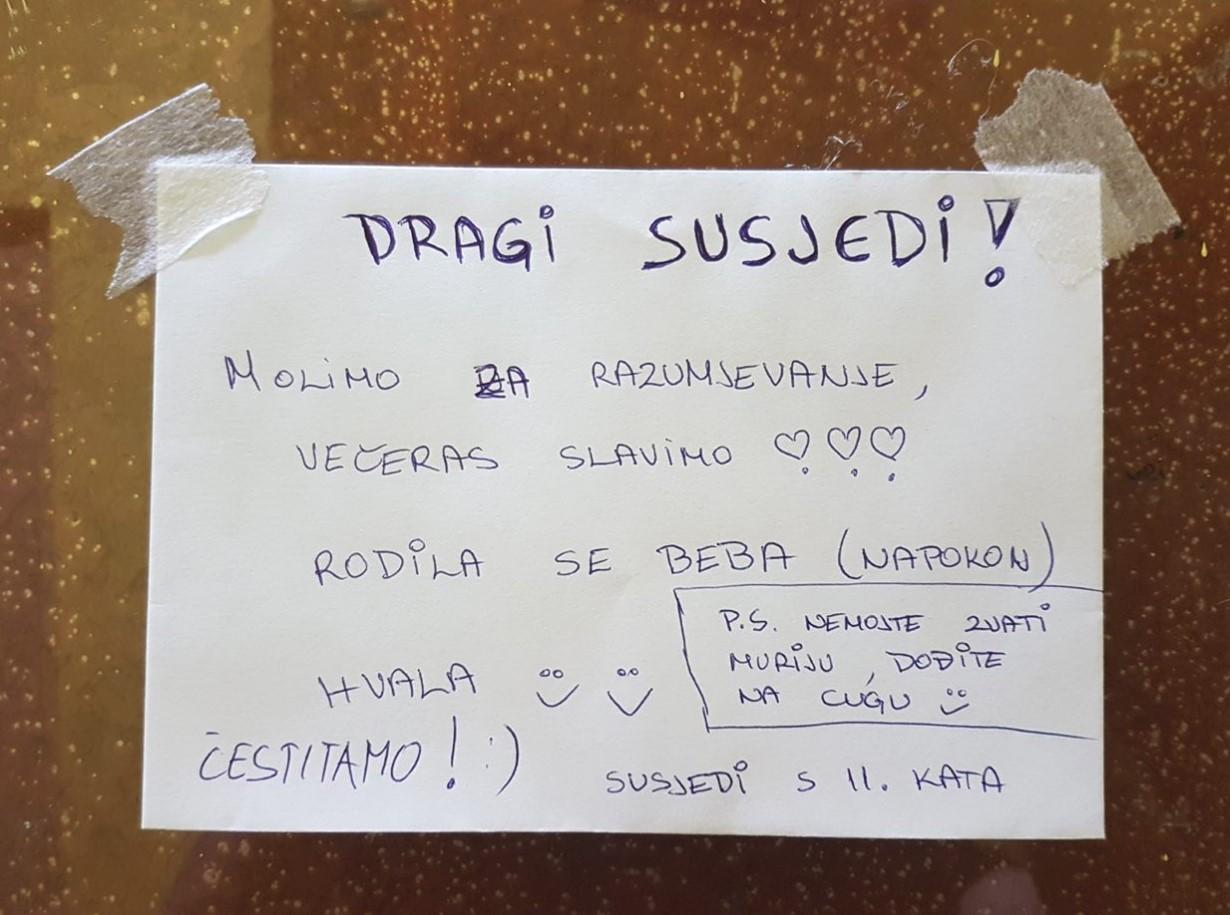 DRAGI SUSJEDI!
MOLIMO ZA RAZUMJEVANJE,
VEČERAS SLAVIMO ♡♡♡
RODILA SE BEBA (NAPOKON)
P.S. NEMOJTE ZVATI
MURIJU, DOĐITE
NA CUGU ü
HVALA ü ü
ČESTITAMO! :)
SUSJEDI S 11. KATA